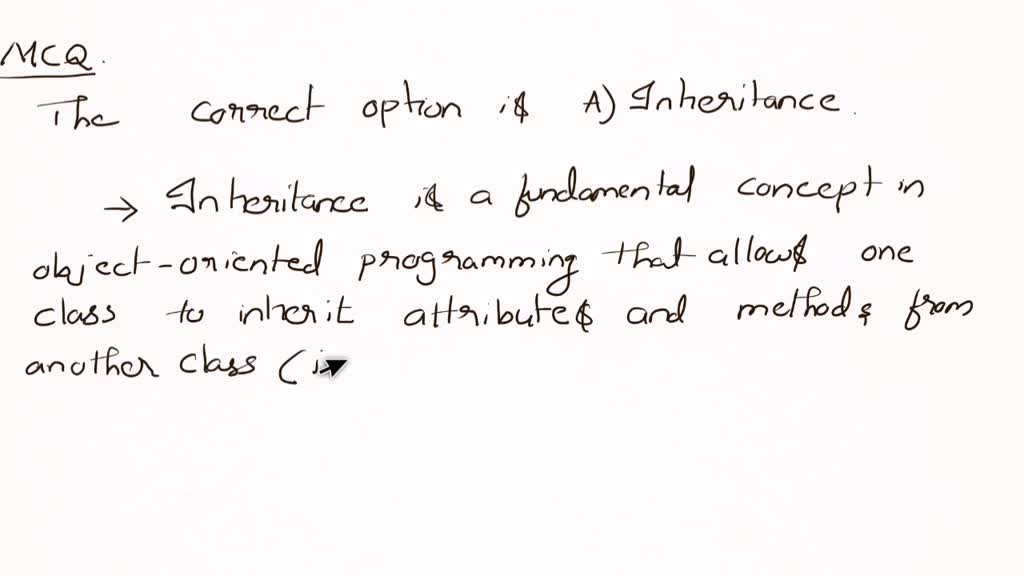 MCQ.
The correct option is A) Inheritance.
→ Inheritance is a fundamental concept in
object-oriented programming that allows one
class to inherit attributes and methods from
another class (i